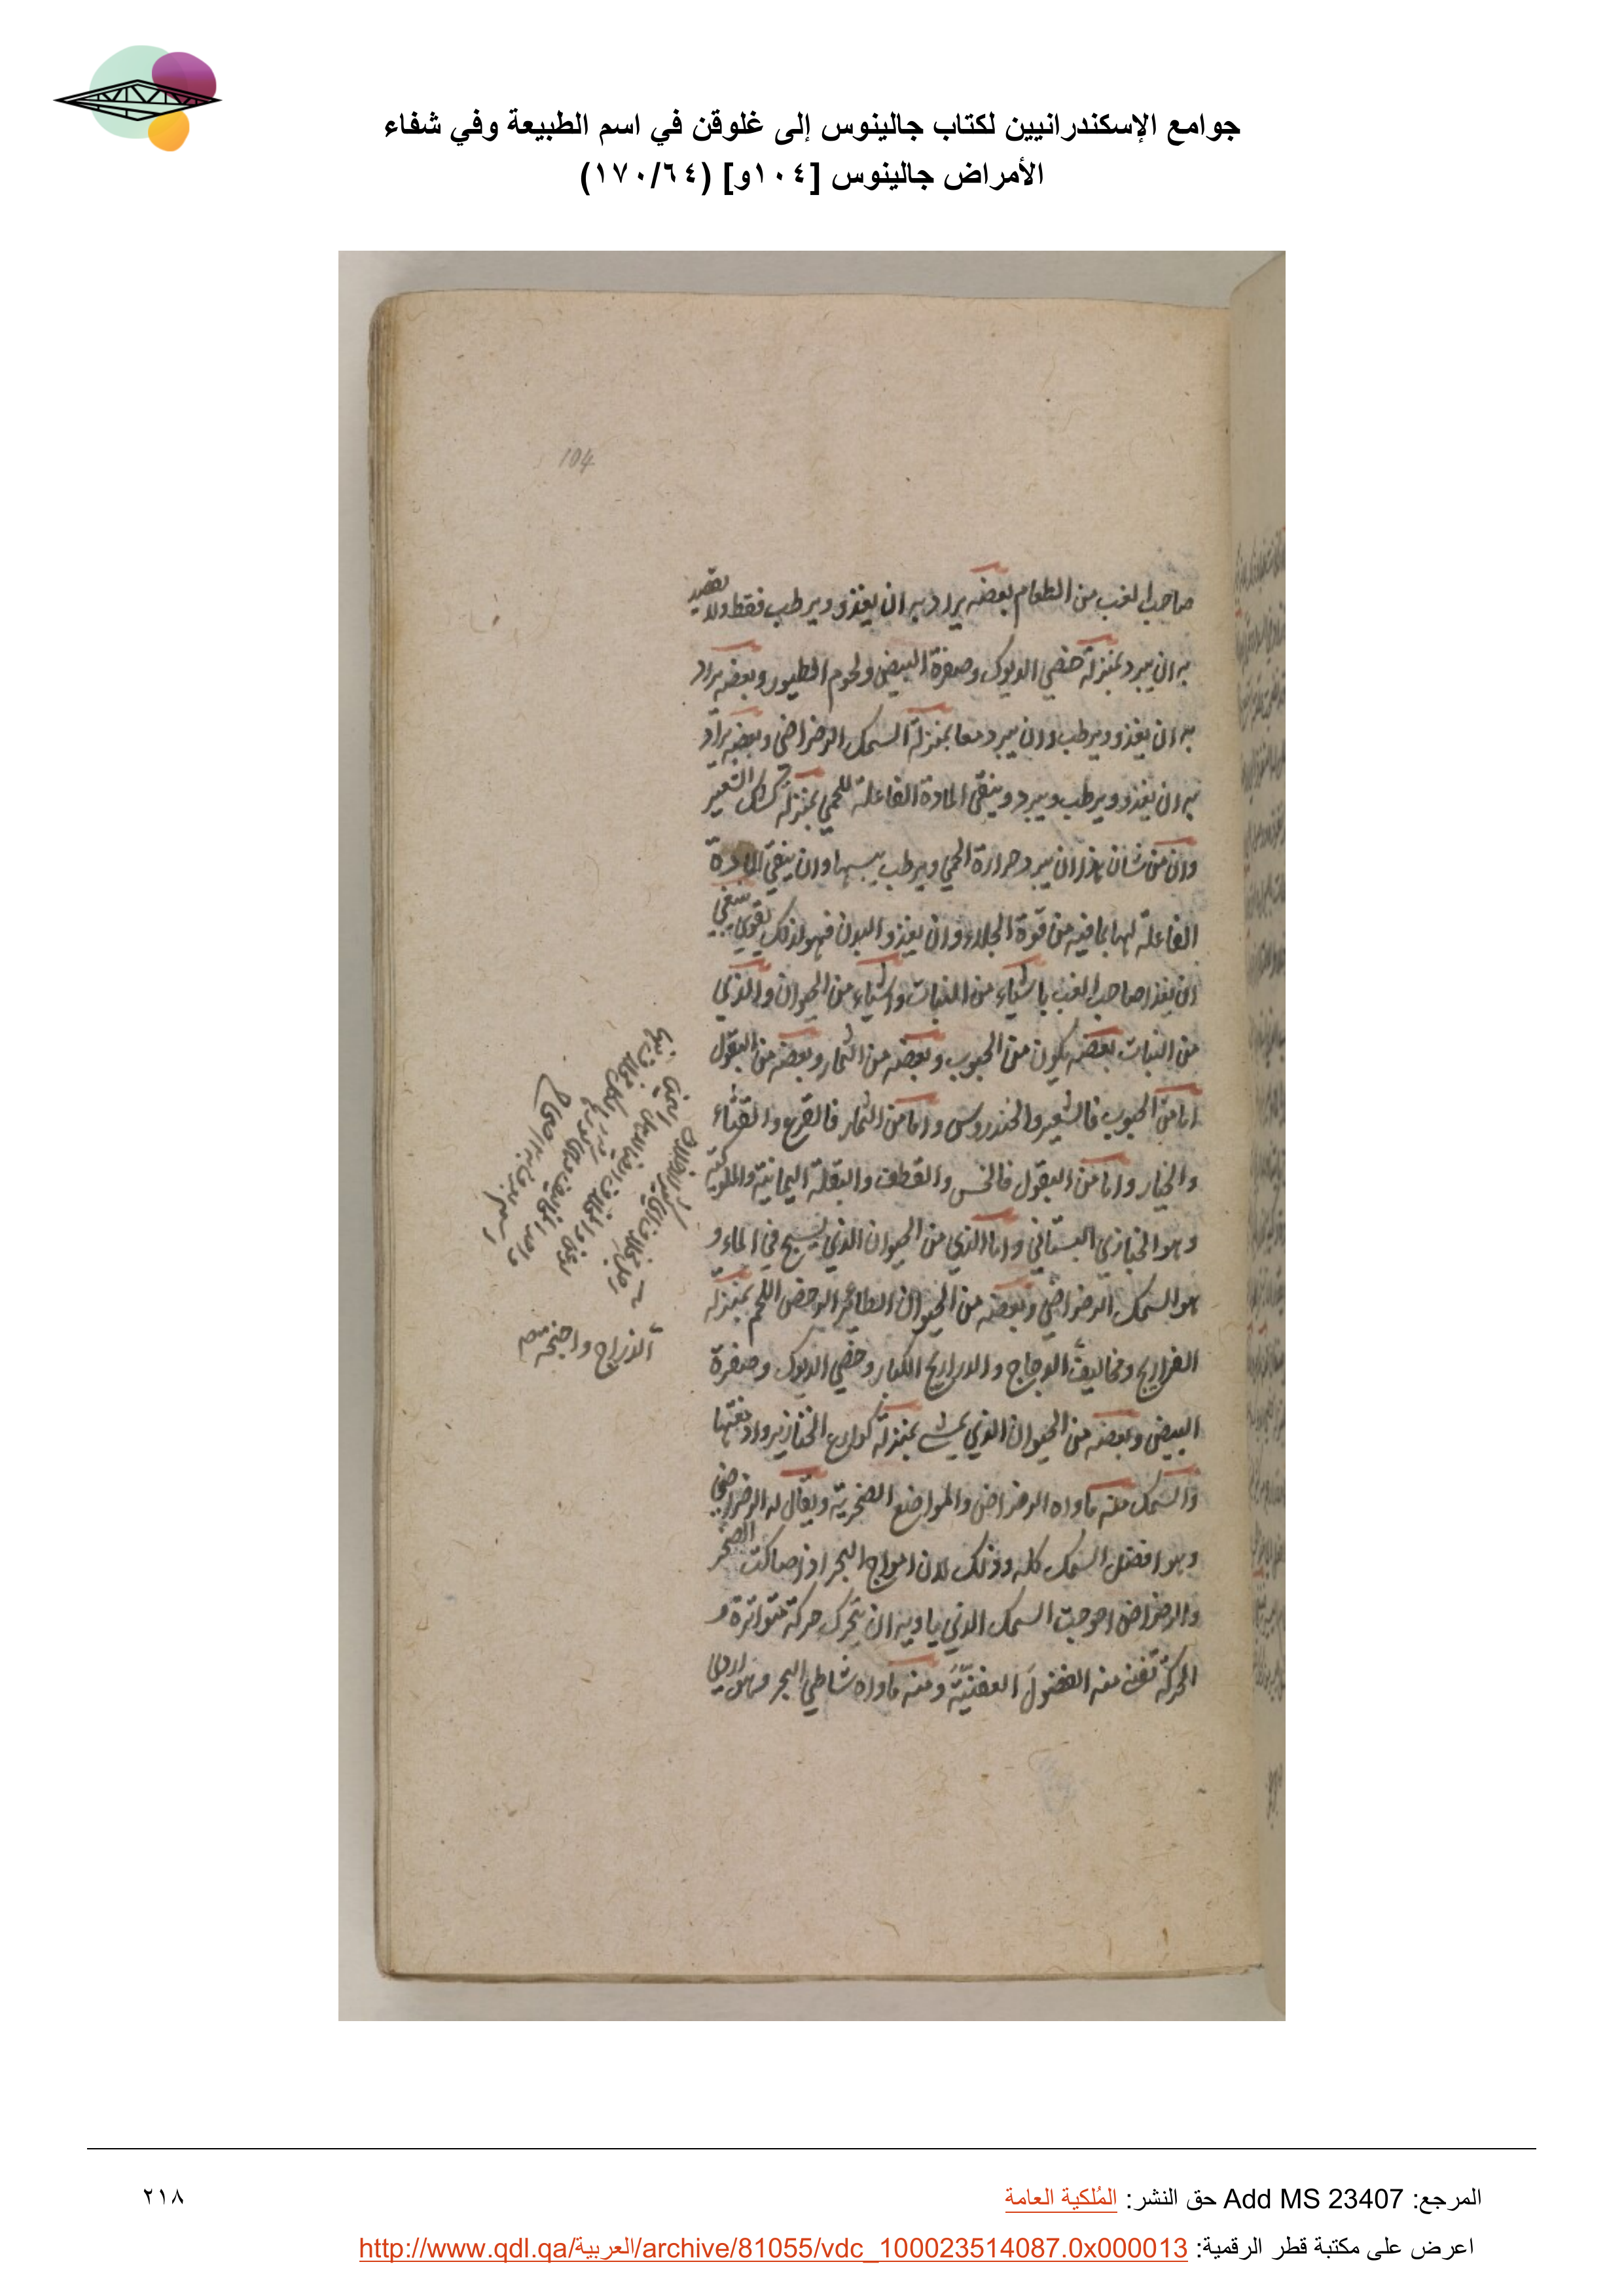 جوامع الإسكندرانيين لكتاب جالينوس إلى غلوقن في اسم الطبيعة وفي شفاء
الأمراض جالينوس [١٠٤و] (١٧٠/٦٤)
104
صاحب الغب من الطعام بعضه يراد به ان يغذو ويرطب فقط ولا يقصد
به ان يبرد بمنزلة خصي الديوك وصفرة البيض ولحوم الطيور وبعضه يراد
به ان يغذو ويرطب وان يبرد معا بمنزلة السمك الرضراضي وبعضه يراد
به ان يغذو ويرطب ويبرد وينقي المادة الفاعلة للحمي بمنزلة كشك الشعير
وان من شان هذا ان يبرد حرارة الحمي ويرطب يبسها وان ينقي المادة
الفاعلة لها بما فيه من قوة الجلاء وان يغذو البدن فهو لذلك يقوي ينبغي
ان يغذا صاحب الغب باشياء من النبات واشياء من الحيوان والذي
من النبات بعضه يكون من الحبوب وبعضه من الثمار وبعضه من البقول
اما من الحبوب فالشعير والخندروس واما من الثمار فالقرع والقثاء
والخيار واما من البقول فالخس والقطف والبقلة اليمانية والملوكية
وهو الخبازي البستاني واما الذي من الحيوان الذي يسبح في الماء و
هو السمك الرضراضي وبعضه من الحيوان الطائر الرخص اللحم بمنزلة
الفراريج ومخاليف الدجاج والدراريج الكبار وخصي الديوك وصفرة
البيض وبعضه من الحيوان الذي يمشي بمنزلة كوارع الخنازير وادمغتها
والسمك منه ماواه الرضراض والمواضع الصخرية ويقال له الرضراضي
وهو افضل السمك كله وذلك لان امواج البحر اذا صاكت الصخر
والرضراض احوجت السمك الذي ياويه ان يتحرك حركة متواترة و
الحركة تفني منه الفضول العفنية ومنه ماواه شاطي البحر
الدراج واجنحة
المرجع: Add MS 23407 حق النشر: المُلكية العامة
٢١٨
اعرض على مكتبة قطر الرقمية: http://www.qdl.qa/العربية/archive/81055/vdc_100023514087.0x000013